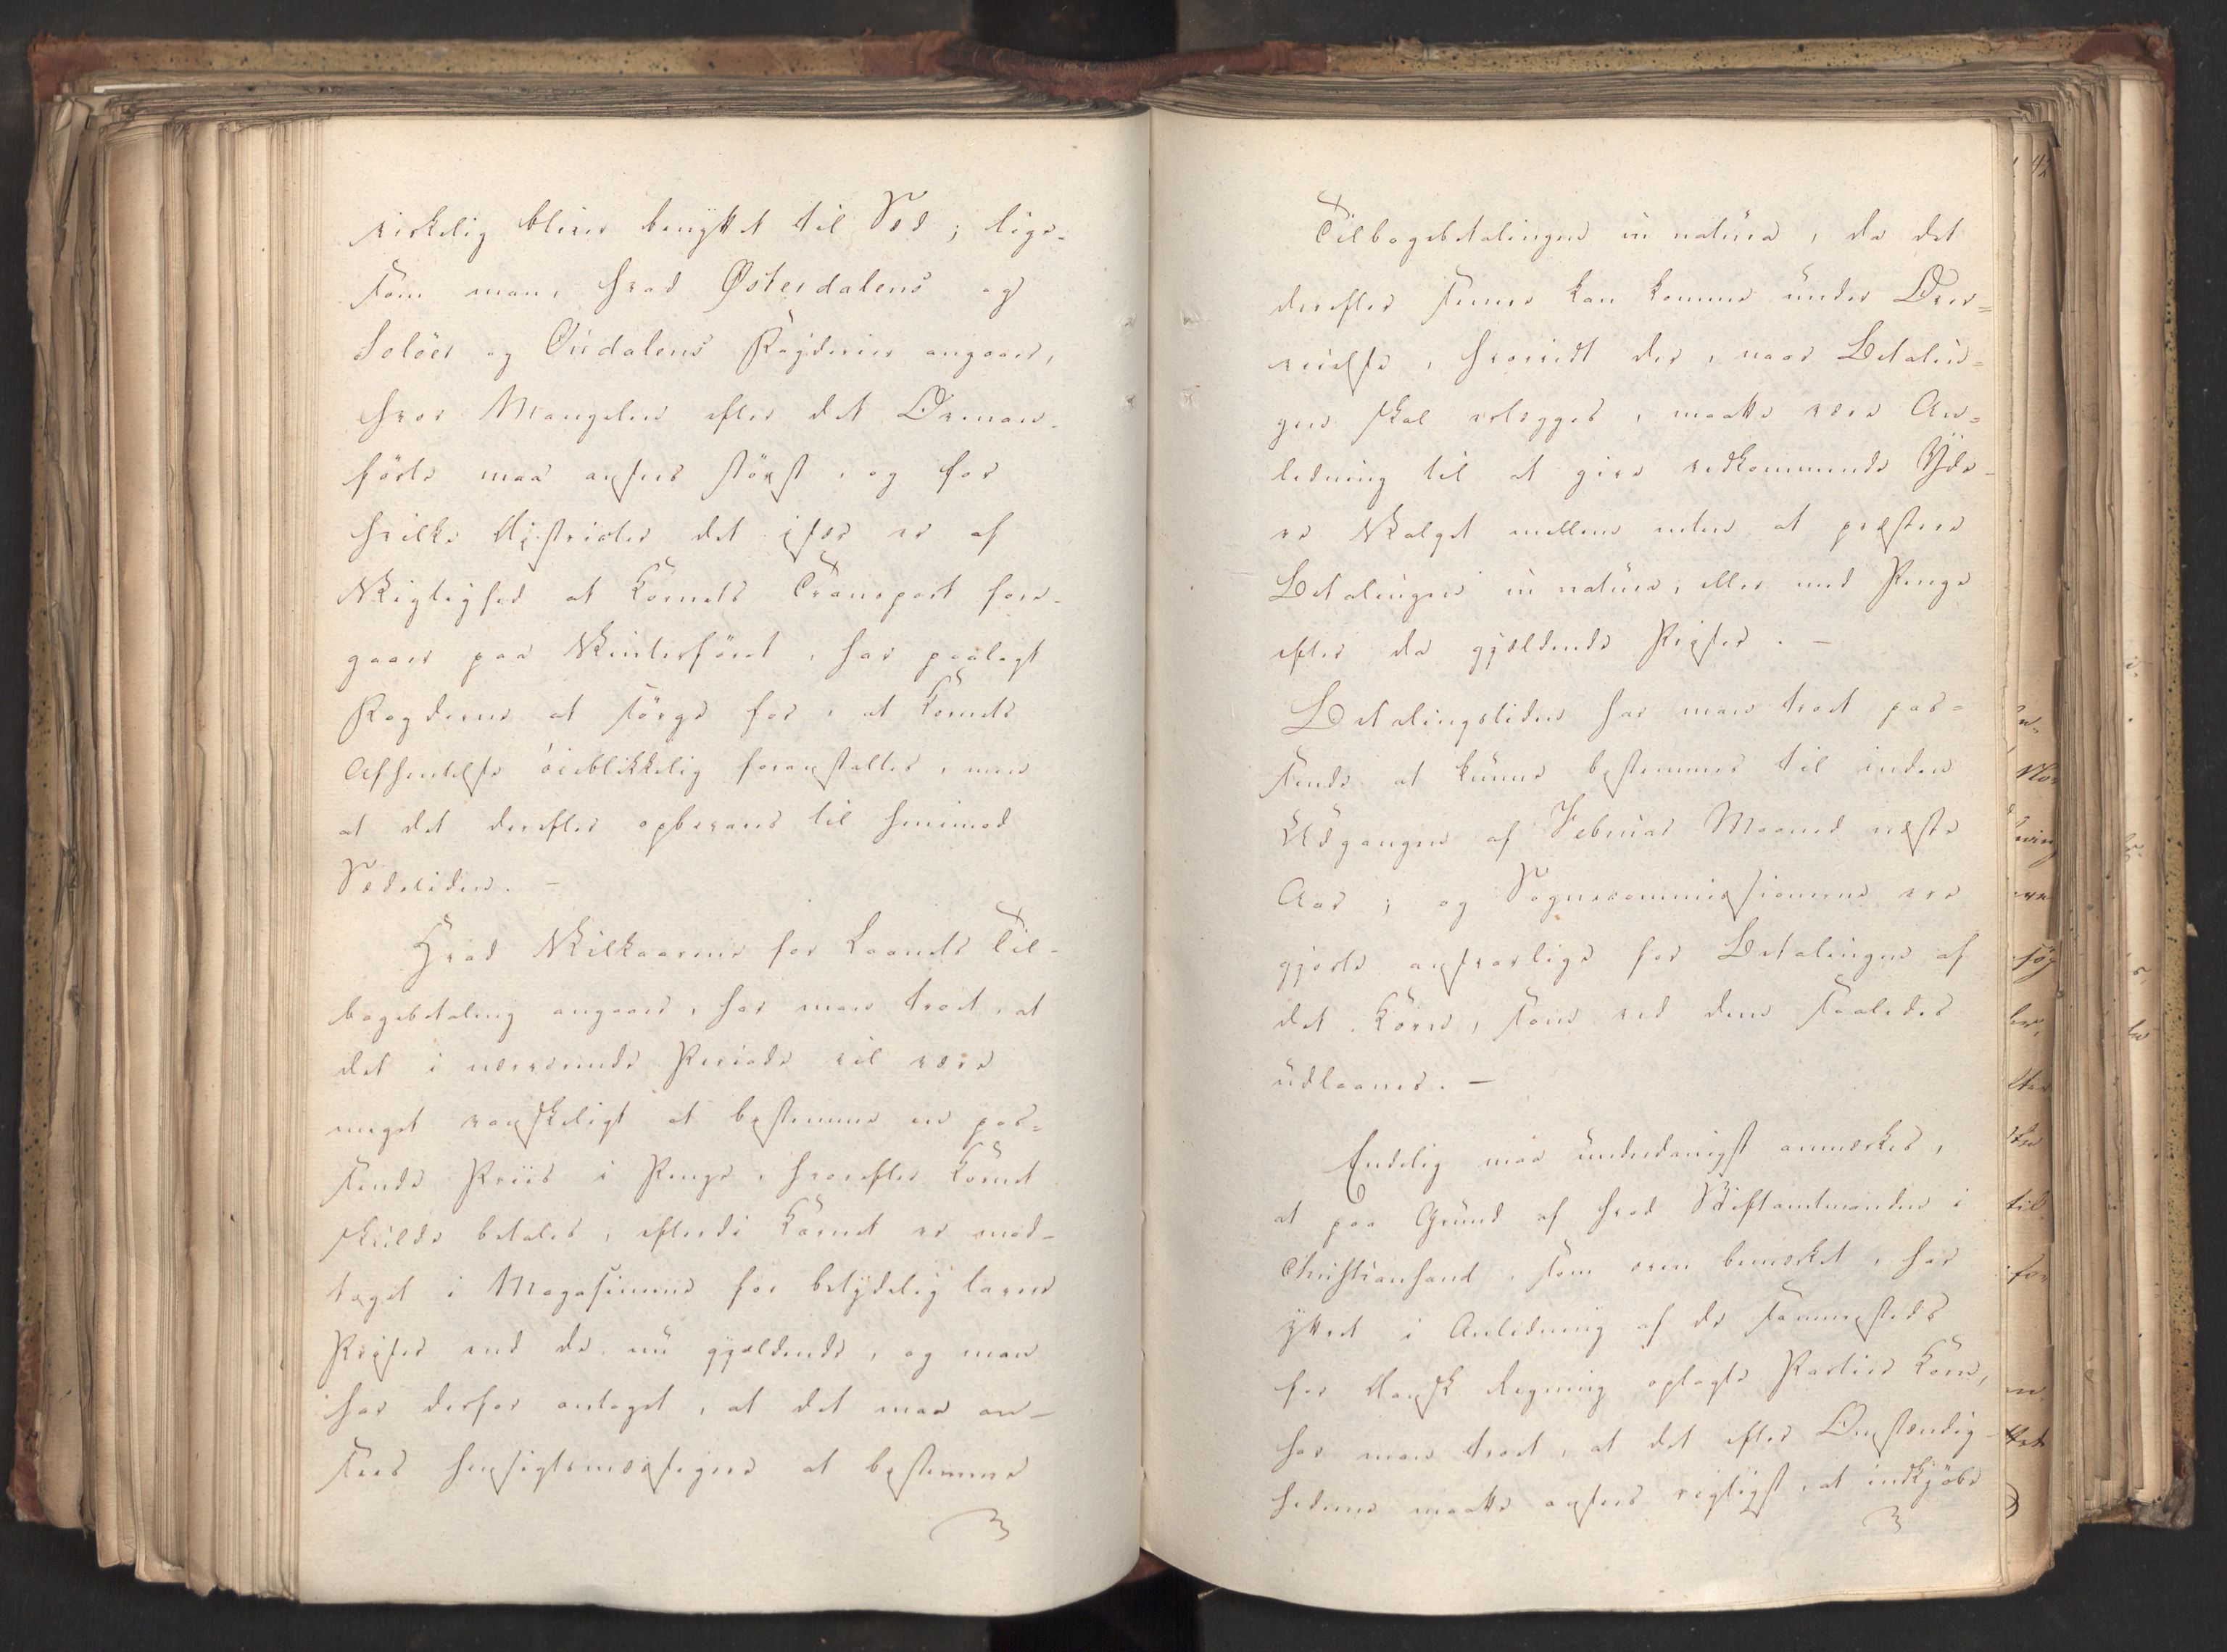 virkelig bliver benyttet til Sæd; lige-
som man, hvad Østerdalens og
Soløer og Oudalens Fogderier angaaer,
hvor Mangelen efter det Ovenan-
förte maa ansees störst, og for
hvilke Districter det især er af
Vigtighed at Kornets Transport fore-
gaaer paa Vinterföret, har paalagt
Fogderne at sörge for, at Kornets
Afsendelse öieblikkelig foranstaltes, men
at det derefter opbevares til henimod
Sædetiden. –
Hvad Vilkaarene for Laanets Til-
bagebetaling angaaer, har man troet, at
det i nærværende Periode vil være
meget vanskeligt at bestemme en pas-
sende Priis i Penge, hvorefter Kornet
skulde betales, efterdi Kornet er mod-
taget i Magasinerne for betydelig lavere
Priser end de nu gjældende, og man
har derfor antaget, at det maa an-
sees hensigtsmæssigere at bestemme
Tilbagebetalingen in natura, da det
derefter senere kan komme under Over-
veielse, hvorvidt der, naar Betalin-
gen skal erlægges, maatte være An-
ledning til at give vedkommende Yde-
re Valget mellem enten at præstere
Betalingen in natura, eller med Penge
efter da gjældende Priser. –
Betalingstiden har man troet pas-
sende at kunne bestemmes til inden
Udgangen af Februar Maaned næste
Aar; og Sognecommissionerne ere
gjorte ansvarlige for Betalingen af
det Korn, som ved dem saaledes
udlaanes. –
Endelig maa underdanigst anmærkes,
at paa Grund af hvad Stiftamtmanden i
Christiansand, som oven bemærket, har
yttret i Anledning af de sammesteds
for Dansk Regning oplagte Partier Korn,
har man troet, at det efter Omstændig-
hederne maatte ansees rigtigst, at indkjöbe